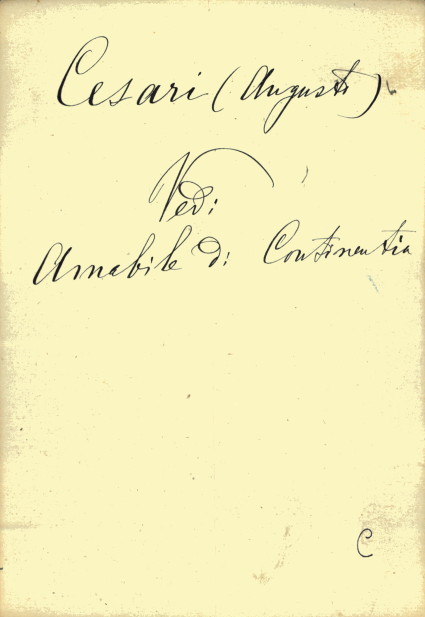 Cesari (Augusto)
Vedi
Amabile di Continentia
C